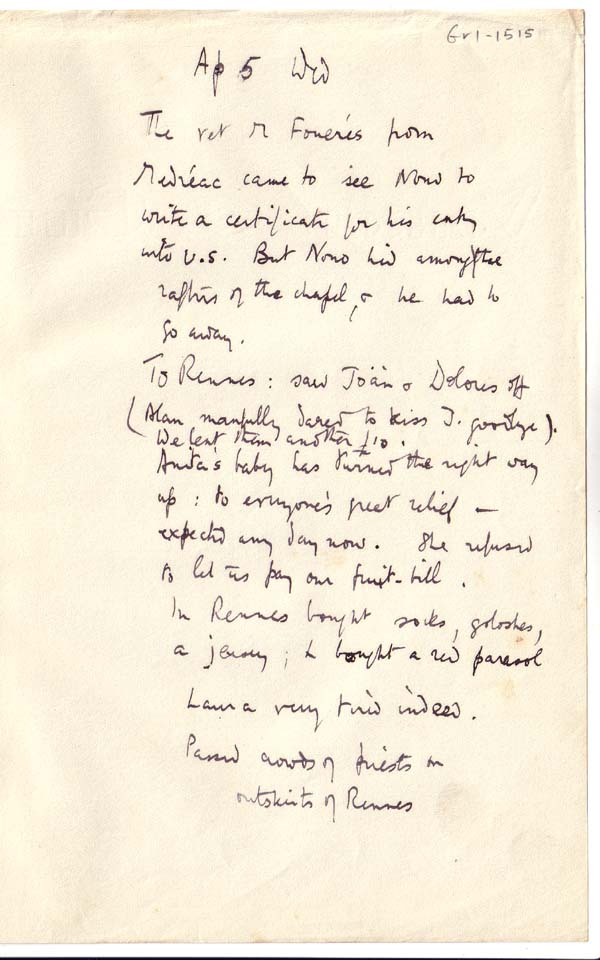 Gr1-1515
Ap 5 Wed
The vet M Fouerés from
Medréac came to see Nono to
write a certificate for his entry
into U.S. But Nono hid among the
rafters of the chapel, & he had to
go away.
To Rennes: saw Joan & Dolores off
(Alan manfully dared to kiss J. goodbye).
We lent them another £10.
Anita's baby has turned the right way
up: to everyone's great relief —
expected any day now. She refused
to let us pay our fruit-bill.
In Rennes bought socks, goloshes,
a jersey; L bought a red parasol
Laura very tired indeed.
Passed crowds of priests on
outskirts of Rennes